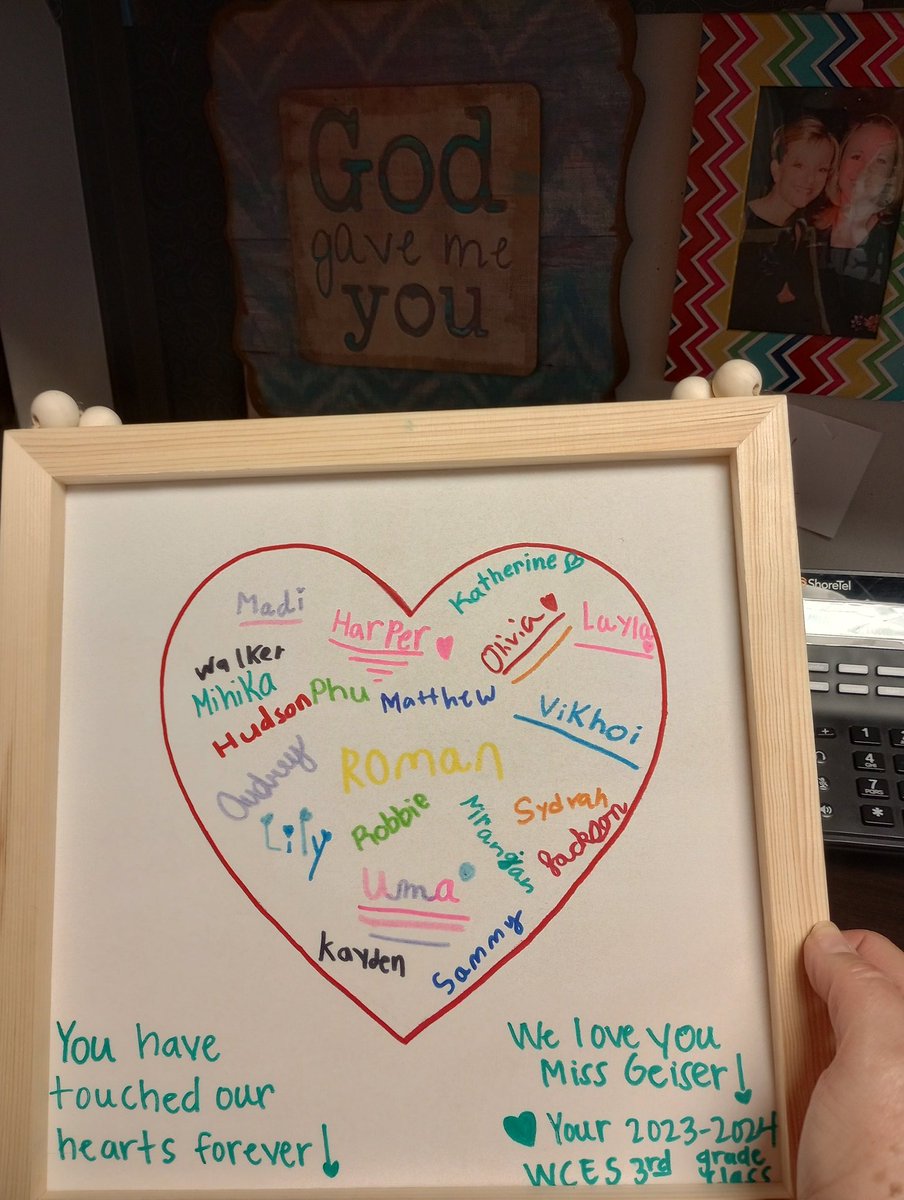 God
gave me
you
Madi
Harper
Katherine
Olivia
Layla
Walker
Mihika
Hudson
Phu
Matthew
Vikhoi
Audrey
Roman
Lily
Robbie
Niranjan
Sydrah
Jackson
Uma
Kayden
Sammy
You have
touched our
hearts forever!
We love you
Miss Geiser!
Your 2023-2024
WCES 3rd grade
class
ShoreTel
1
4
GHI
7
PQRS
*